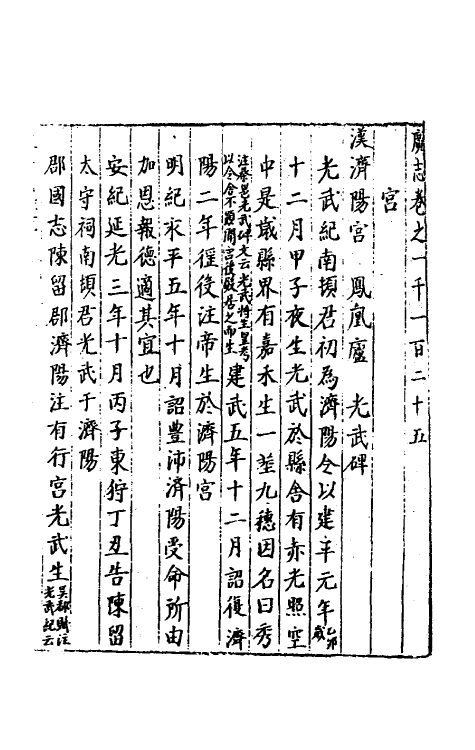 廣志卷之一千一百二十五
宮
漢濟陽宮 鳳凰廬 光武碑
光武紀南頓君初為濟陽令以建平元年乙卯歲
十二月甲子夜生光武於縣舍有赤光照空
中是歲縣界有嘉禾生一莖九穗因名曰秀
注蔡邕光武碑文云光武將生皇考以令舍不顯開宮後殿居之而生建武五年十二月詔復濟
陽二年徭役注帝生於濟陽宮
明紀永平五年十月詔豐沛濟陽受命所由
加恩報德適其宜也
安紀延光三年十月丙子東狩丁丑告陳留
太守祠南頓君光武于濟陽
郡國志陳留郡濟陽注有行宮光武生吳郡賦注光武紀云